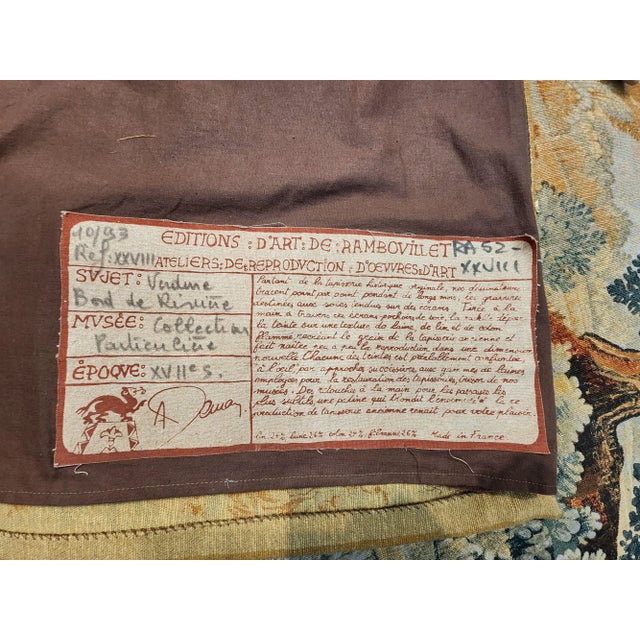 10/93
EDITIONS : D'ART : DE : RAMBOVILLET
RA 62-
XXVIII
Réf: XXVIII
ATELIERS : DE : REPRODVCTION : D'OEVRES D'ART
SVJET : Verdure
Bord de Rivière
MVSÉE : Collection
Particulière
ÉPOQVE : XVIIe S.
Partant de la tapisserie historique originale, nos dessinateurs
tracent point par point pendant de longs mois, les gravures
destinées aux soies tendues sur des cadres. Tirée à la
main à travers ces écrans
la teinte sur une texture de laine, de lin et de coton
recréant le grain de la tapisserie ancienne et
fait naître peu à peu la reproduction dans une dimension
nouvelle. Chacune des teintes est
à l'oeil, par approches successives aux gammes de laines
employées pour la restauration des tapisseries, trésor de nos
musées. Des retouches à la main pour les passages les
plus subtils, une patine qui
production de tapisserie ancienne renait pour votre plaisir.
Lin 24% Laine 26% coton 24% Fibranne 26% Made in France